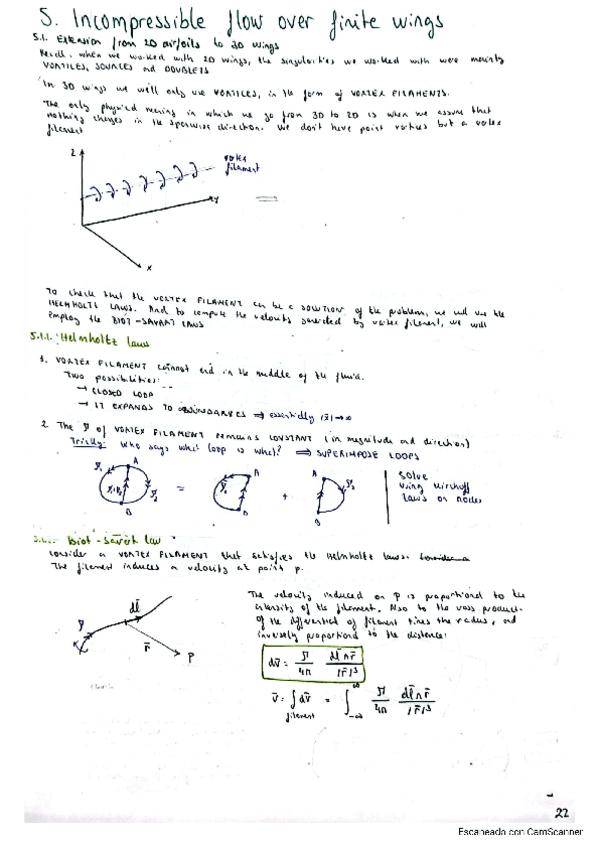 5. Incompressible flow over finite wings
5.1. Extension from 2D airfoils to 3D wings
Recall, when we worked with 2D wings, the singularities we worked with were mainly
VORTICES, SOURCES and DOUBLETS
In 3D wings we will only use VORTICES, in the form of VORTEX FILAMENTS.
The only physical meaning in which we go from 3D to 2D is when we assume that
nothing changes in the spanwise direction. We don't have point vortices but a vortex
filament
z
vortex
filament
y
x
To check that the VORTEX FILAMENT can be a SOLUTION of the problem, we will use the
HELMHOLTZ LAWS. And to compute the velocity generated by vortex filament, we will
employ the BIOT-SAVART LAWS
5.1.1. Helmholtz laws
1. VORTEX FILAMENT cannot end in the middle of the fluid.
Two possibilities:
→ CLOSED LOOP
→ IT EXPANDS TO BOUNDARIES ⇒ essentially |x̄|→∞
2. The Γ of VORTEX FILAMENT remains CONSTANT (in magnitude and direction)
Tricky: Who says what loop is what? ⇒ SUPERIMPOSE LOOPS
A A A
Γ₁ Γ₂ = Γ₁ + Γ₂
B B B
Solve
using Kirchoff
laws on nodes
Biot-Savart law
Consider a VORTEX FILAMENT that satisfies the Helmholtz laws.
The filament induces a velocity at point P.
Γ dl̄ r̄ P
The velocity induced on P is proportional to the
intensity of the filament. Also to the cross product
of the differential of filament times the radius, and
inversely proportional to the distance:
dv̄ = Γ/4π dl̄∧r̄/|r̄|³
v̄ = ∫ dv̄ = ∫ Γ/4π dl̄∧r̄/|r̄|³
filament -∞ ∞
22
Escaneado con CamScanner